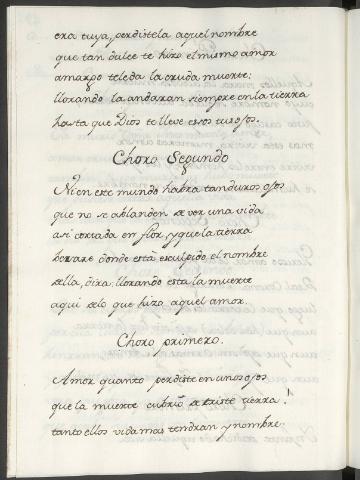 era tuya, perdistela aquel nombre
que tan dulce te hizo el mismo amor
amargo teleda la cruda muerte;
llorando la andaran siempre en la tierra
hasta que Dios te lleve essos tus ojos.
Choro Segundo
Ni en este mundo habra tan duros ojos
que no se ablanden de ver una vida
asi cortada en flor, y que la tierra
besare donde está esculpido el nombre
della, dira: llorando está la muerte
aqui delo que hizo aquel amor.
Choro primero.
Amor quanto perdiste en unos ojos
que la muerte cubrió de triste tierra!
tanto ellos vida mas tendran y nombre.